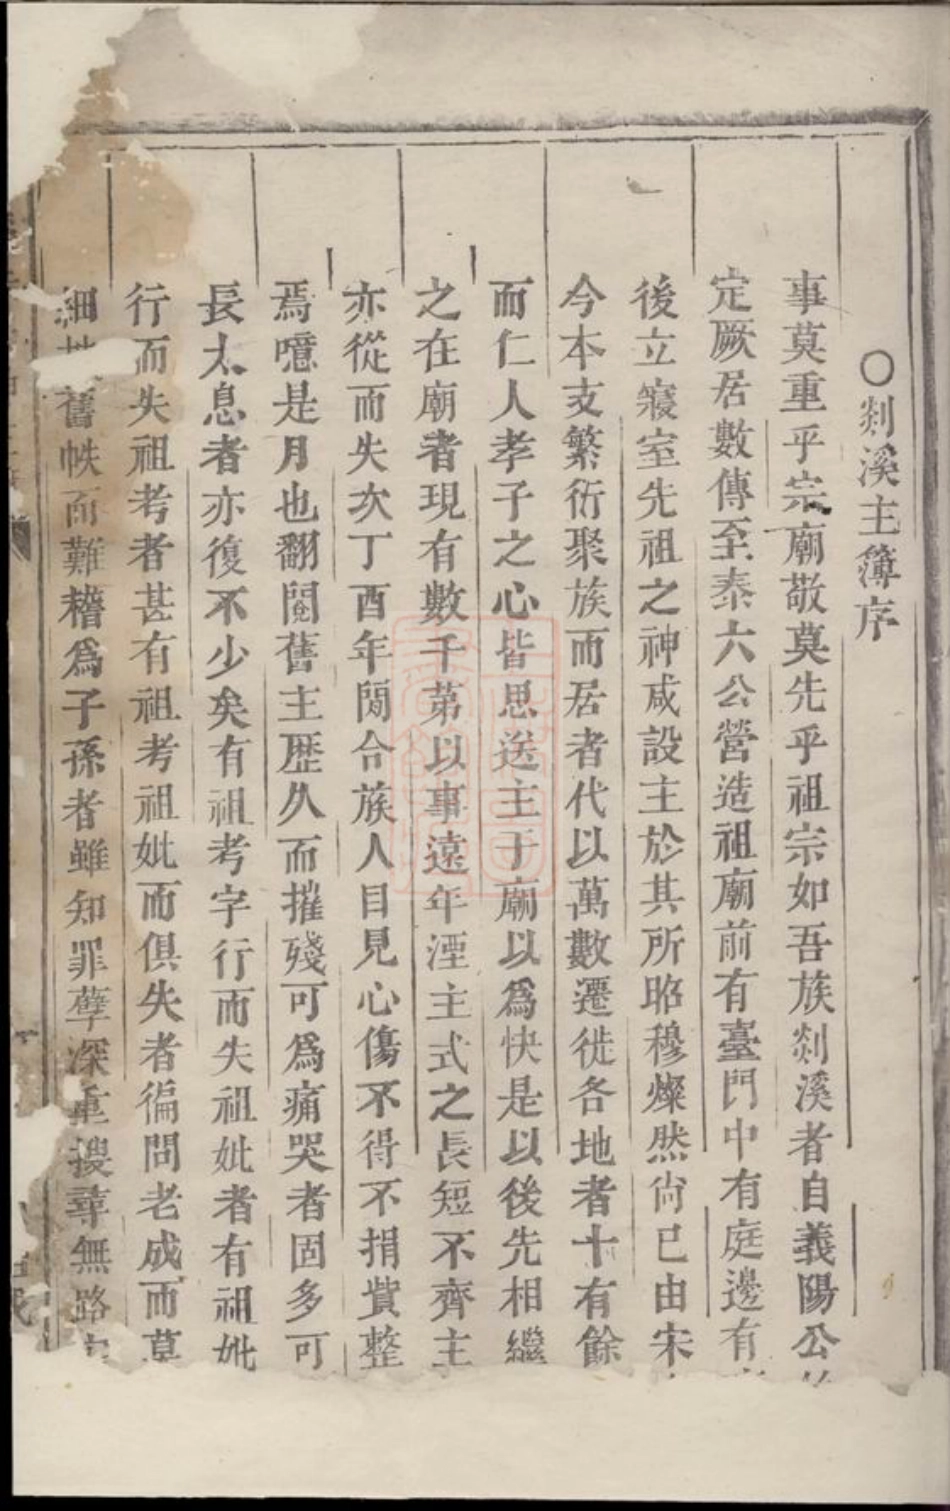 ○剡溪主簿序
事莫重乎宗廟敬莫先乎祖宗如吾族剡溪者自義陽公
定厥居數傳至泰六公營造祖廟前有臺門中有庭邊有
後立寢室先祖之神咸設主於其所昭穆燦然尙已由宋
今本支繁衍聚族而居者代以萬數遷徙各地者十有餘
而仁人孝子之心皆思送主于廟以爲快是以後先相繼
之在廟者現有數千第以事遠年湮主式之長短不齊主
亦從而失次丁酉年閤合族人目見心傷不得不捐貲整
焉噫是月也翻閱舊主歷久而摧殘可爲痛哭者固多可
長太息者亦復不少矣有祖考字行而失祖妣者有祖妣
行而失祖考者甚有祖考祖妣而俱失者徧問老成而莫
細 舊帙而難稽爲子孫者雖知罪孽深重搜尋無路